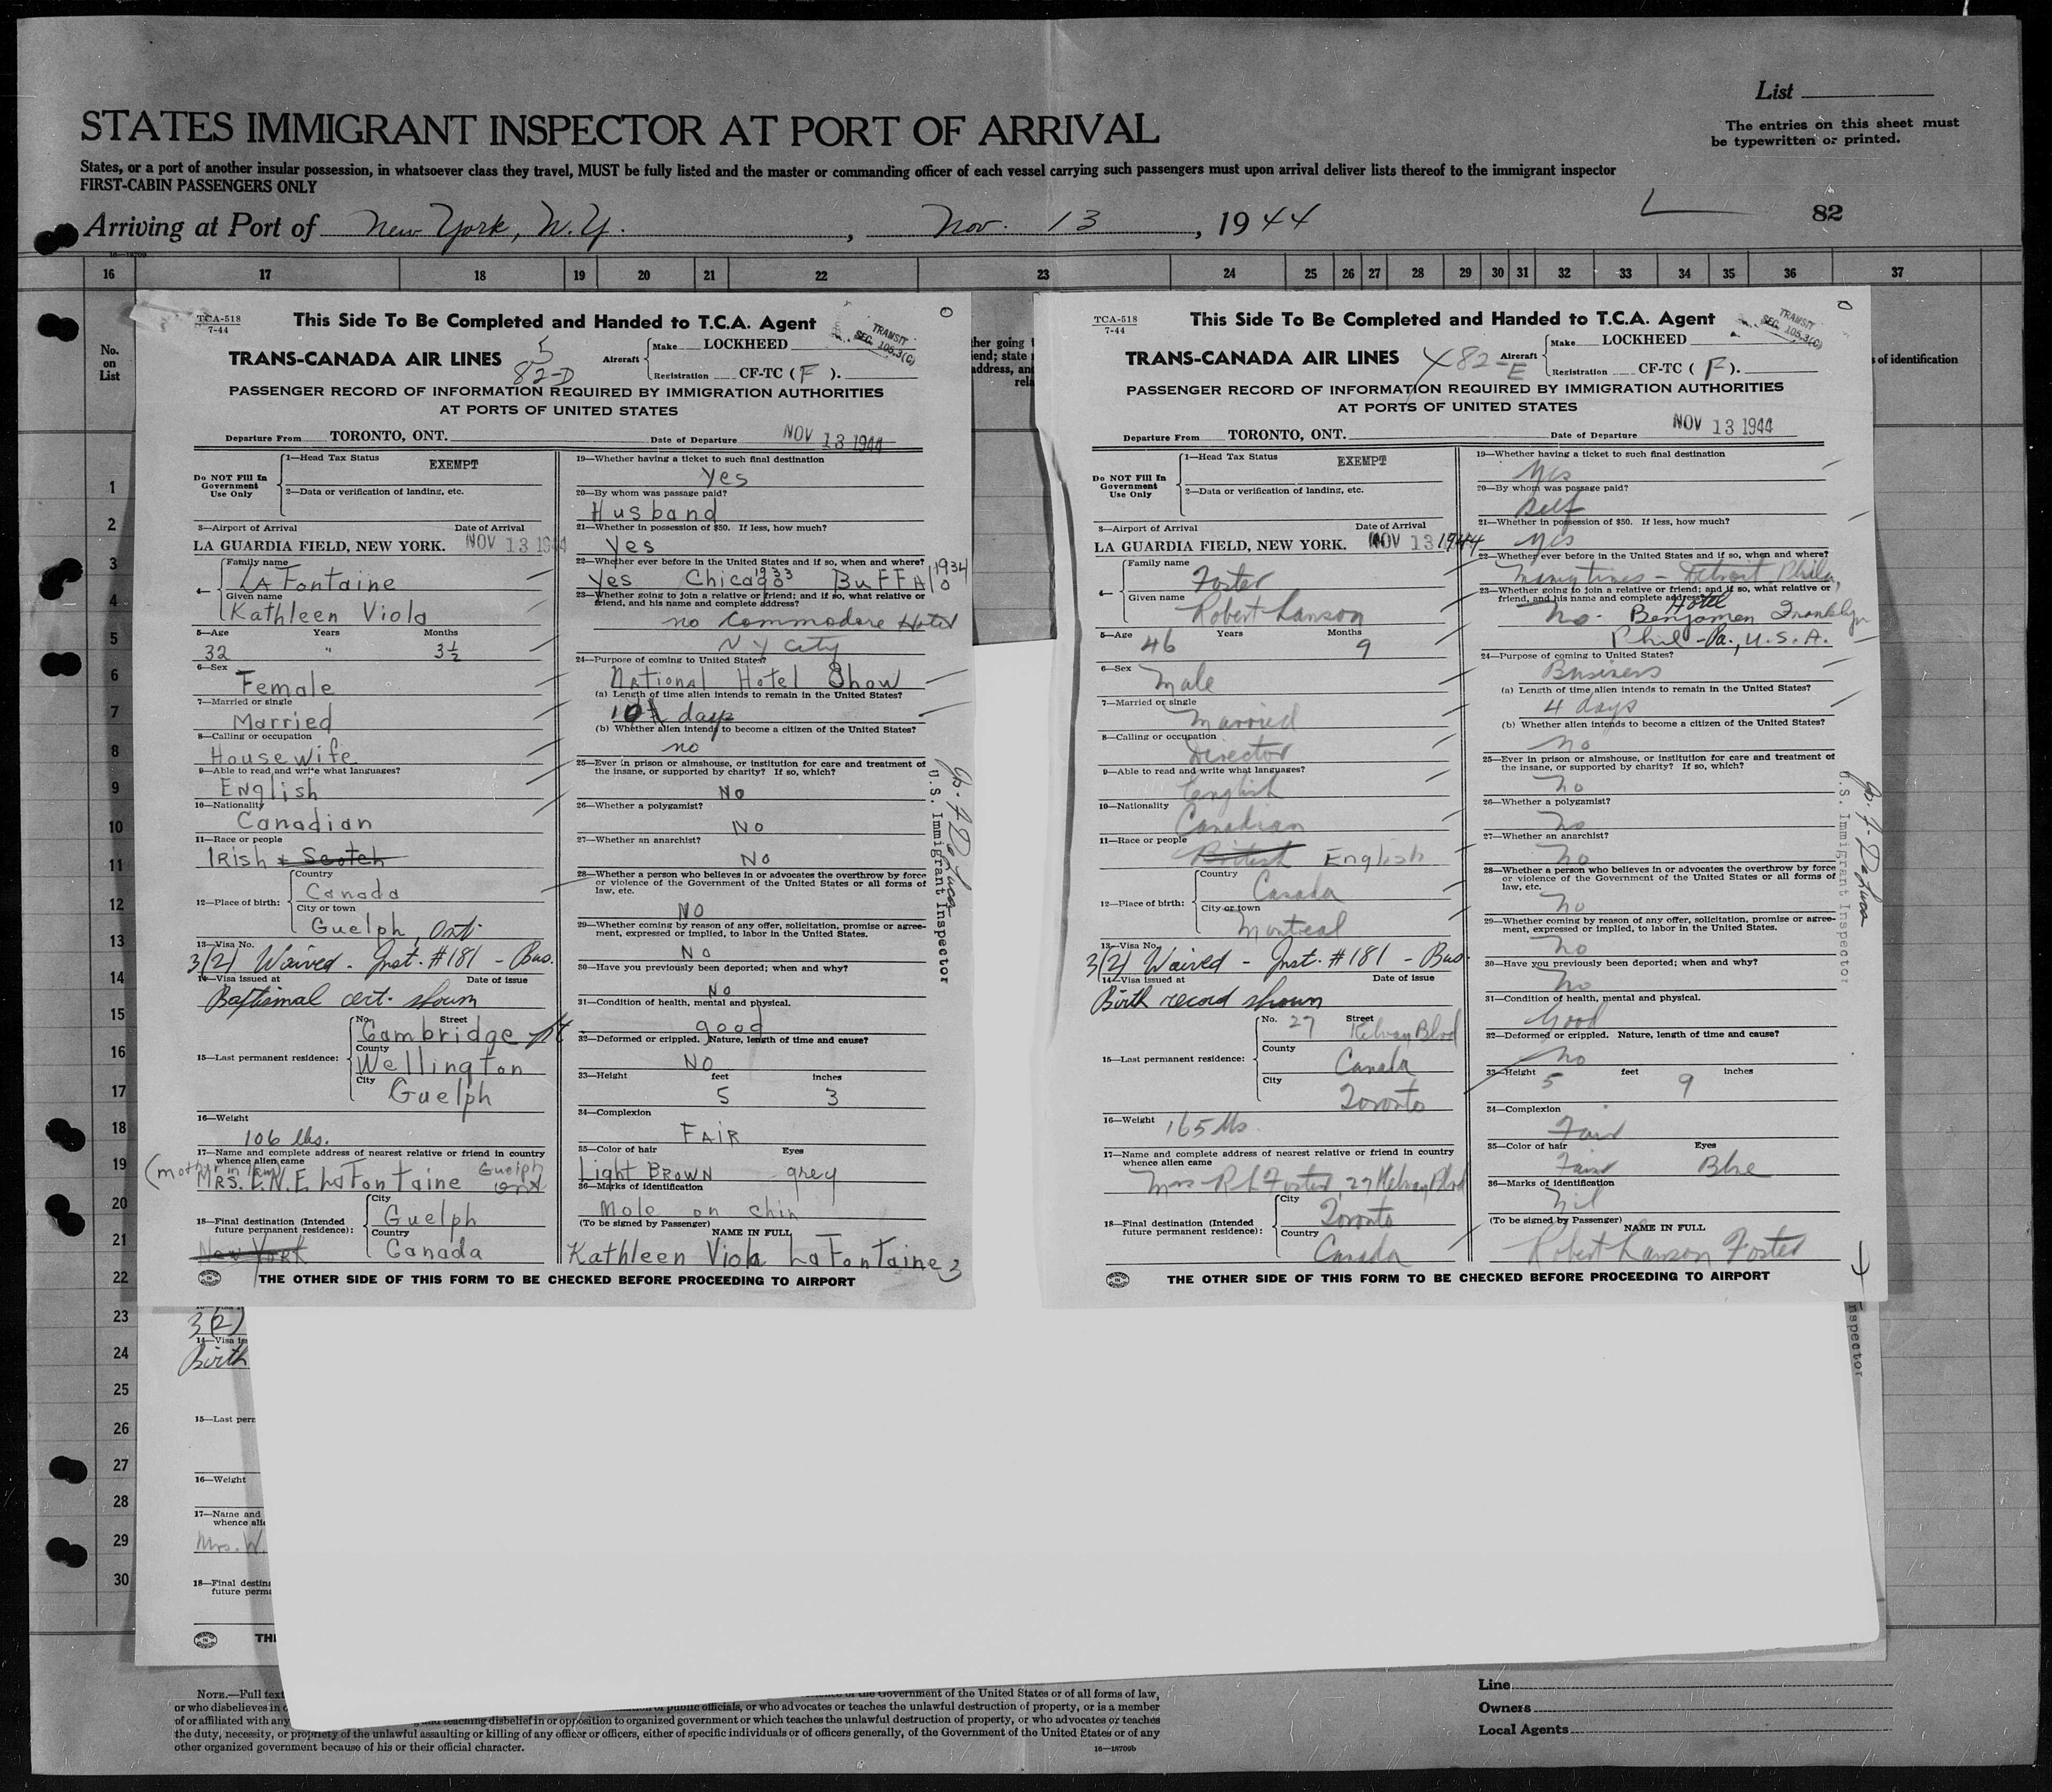 List
STATES IMMIGRANT INSPECTOR AT PORT OF ARRIVAL
The entries on this sheet must
be typewritten or printed.
States, or a port of another insular possession, in whatsoever class they travel, MUST be fully listed and the master or commanding officer of each vessel carrying such passengers must upon arrival deliver lists thereof to the immigrant inspector
FIRST-CABIN PASSENGERS ONLY
Arriving at Port of New York, N.Y., Nov. 13, 1944
82
16 17 18 19 20 21 22 23 24 25 26 27 28 29 30 31 32 33 34 35 36 37
No.
on
List
1
2
3
4
5
6
7
8
9
10
11
12
13
14
15
16
17
18
19
20
21
22
23
24
25
26
27
28
29
30
TCA-518
7-44
This Side To Be Completed and Handed to T.C.A. Agent
TRANSIT
SEC. 105.3(C)
TRANS-CANADA AIR LINES
5
82-D
Aircraft
Make LOCKHEED
Registration CF-TC ( F ).
PASSENGER RECORD OF INFORMATION REQUIRED BY IMMIGRATION AUTHORITIES
AT PORTS OF UNITED STATES
Departure From TORONTO, ONT. Date of Departure NOV 13 1944
Do NOT Fill In
Government
Use Only
1—Head Tax Status EXEMPT
2—Data or verification of landing, etc.
3—Airport of Arrival Date of Arrival
LA GUARDIA FIELD, NEW YORK. NOV 13 1944
4—
Family name
LA Fontaine
Given name
Kathleen Viola
5—Age Years Months
32 " 3½
6—Sex
Female
7—Married or single
Married
8—Calling or occupation
Housewife
9—Able to read and write what languages?
English
10—Nationality
Canadian
11—Race or people
Irish & Scotch
12—Place of birth:
Country
Canada
City or town
Guelph, Ont.
13—Visa No.
3(2) Waived - Inst. #181 - Bus.
14—Visa issued at Date of issue
Baptismal cert. shown
15—Last permanent residence:
No. Street
Cambridge St
County
Wellington
City
Guelph
16—Weight
106 lbs.
17—Name and complete address of nearest relative or friend in country
whence alien came
(mother in law)
MRS. E.N.E. LaFontaine Guelph Ont
18—Final destination (Intended
future permanent residence):
City
Guelph
Country
Canada
New York
19—Whether having a ticket to such final destination
Yes
20—By whom was passage paid?
Husband
21—Whether in possession of $50. If less, how much?
Yes
22—Whether ever before in the United States and if so, when and where?
Yes Chicago 1933 Buffalo 1934
23—Whether going to join a relative or friend; and if so, what relative or
friend, and his name and complete address?
no Commodore Hotel
N Y City
24—Purpose of coming to United States?
National Hotel Show
(a) Length of time alien intends to remain in the United States?
10 days
(b) Whether alien intends to become a citizen of the United States?
no
25—Ever in prison or almshouse, or institution for care and treatment of
the insane, or supported by charity? If so, which?
No
26—Whether a polygamist?
No
27—Whether an anarchist?
No
28—Whether a person who believes in or advocates the overthrow by force
or violence of the Government of the United States or all forms of
law, etc.
NO
29—Whether coming by reason of any offer, solicitation, promise or agree-
ment, expressed or implied, to labor in the United States.
No
30—Have you previously been deported; when and why?
No
31—Condition of health, mental and physical.
good
32—Deformed or crippled. Nature, length of time and cause?
NO
33—Height feet inches
5 3
34—Complexion
FAIR
35—Color of hair Eyes
Light BROWN grey
36—Marks of identification
Mole on chin
(To be signed by Passenger)
NAME IN FULL
Kathleen Viola LaFontaine
3
U.S. Immigrant Inspector
THE OTHER SIDE OF THIS FORM TO BE CHECKED BEFORE PROCEEDING TO AIRPORT
TCA-518
7-44
This Side To Be Completed and Handed to T.C.A. Agent
TRANSIT
SEC. 105.3(C)
TRANS-CANADA AIR LINES
82-E
Aircraft
Make LOCKHEED
Registration CF-TC ( F ).
PASSENGER RECORD OF INFORMATION REQUIRED BY IMMIGRATION AUTHORITIES
AT PORTS OF UNITED STATES
Departure From TORONTO, ONT. Date of Departure NOV 13 1944
Do NOT Fill In
Government
Use Only
1—Head Tax Status EXEMPT
2—Data or verification of landing, etc.
3—Airport of Arrival Date of Arrival
LA GUARDIA FIELD, NEW YORK. NOV 13 1944
4—
Family name
Foster
Given name
Robert Lanson
5—Age Years Months
46 9
6—Sex
Male
7—Married or single
Married
8—Calling or occupation
Director
9—Able to read and write what languages?
English
10—Nationality
Canadian
11—Race or people
British English
12—Place of birth:
Country
Canada
City or town
Montreal
13—Visa No.
3(2) Waived - Inst. #181 - Bus.
14—Visa issued at Date of issue
Birth record shown
15—Last permanent residence:
No. Street
27 Kelway Blvd
County
Canada
City
Toronto
16—Weight
165 lbs
17—Name and complete address of nearest relative or friend in country
whence alien came
Mrs R L Foster, 27 Kelway Blvd
18—Final destination (Intended
future permanent residence):
City
Toronto
Country
Canada
19—Whether having a ticket to such final destination
Yes
20—By whom was passage paid?
Self
21—Whether in possession of $50. If less, how much?
Yes
22—Whether ever before in the United States and if so, when and where?
Many times - Detroit Phila,
23—Whether going to join a relative or friend; and if so, what relative or
friend, and his name and complete address?
No. Hotel Benjamen Franklyn
Phil - Pa., U.S.A.
24—Purpose of coming to United States?
Business
(a) Length of time alien intends to remain in the United States?
4 days
(b) Whether alien intends to become a citizen of the United States?
no
25—Ever in prison or almshouse, or institution for care and treatment of
the insane, or supported by charity? If so, which?
no
26—Whether a polygamist?
no
27—Whether an anarchist?
no
28—Whether a person who believes in or advocates the overthrow by force
or violence of the Government of the United States or all forms of
law, etc.
no
29—Whether coming by reason of any offer, solicitation, promise or agree-
ment, expressed or implied, to labor in the United States.
no
30—Have you previously been deported; when and why?
no
31—Condition of health, mental and physical.
Good
32—Deformed or crippled. Nature, length of time and cause?
no
33—Height feet inches
5 9
34—Complexion
Fair
35—Color of hair Eyes
Fair Blue
36—Marks of identification
Nil
(To be signed by Passenger)
NAME IN FULL
Robert Lanson Foster
U.S. Immigrant Inspector
THE OTHER SIDE OF THIS FORM TO BE CHECKED BEFORE PROCEEDING TO AIRPORT
s of identification
3(2)
14—Visa
Birth
15—Last
16—Weight
17—Name and
whence
Mrs. W.
18—Final
future
nspector
NOTE.—Full text
or who disbelieves in public officials, or who advocates or teaches the unlawful destruction of property, or is a member
of or affiliated with any teaching disbelief in or opposition to organized government or which teaches the unlawful destruction of property, or who advocates or teaches
the duty, necessity, or propriety of the unlawful assaulting or killing of any officer or officers, either of specific individuals or of officers generally, of the Government of the United States or of any
other organized government because of his or their official character.
16—18709b
Line
Owners
Local Agents